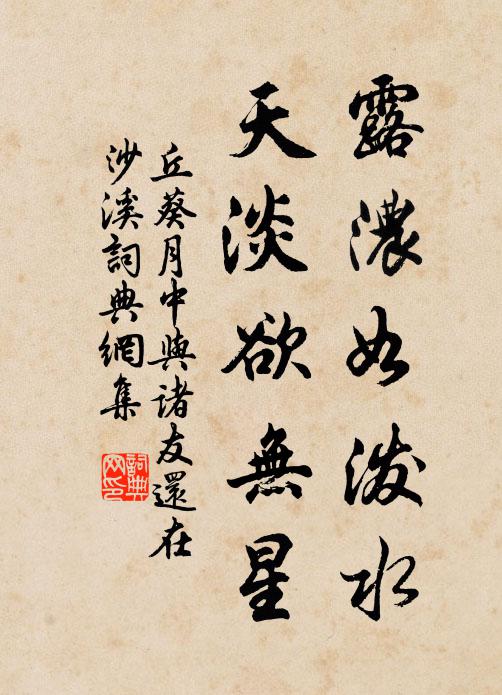 露濃如潑水
天淡欲無星
丘葵月中與諸友還在
沙溪詞典網集
詞典网印